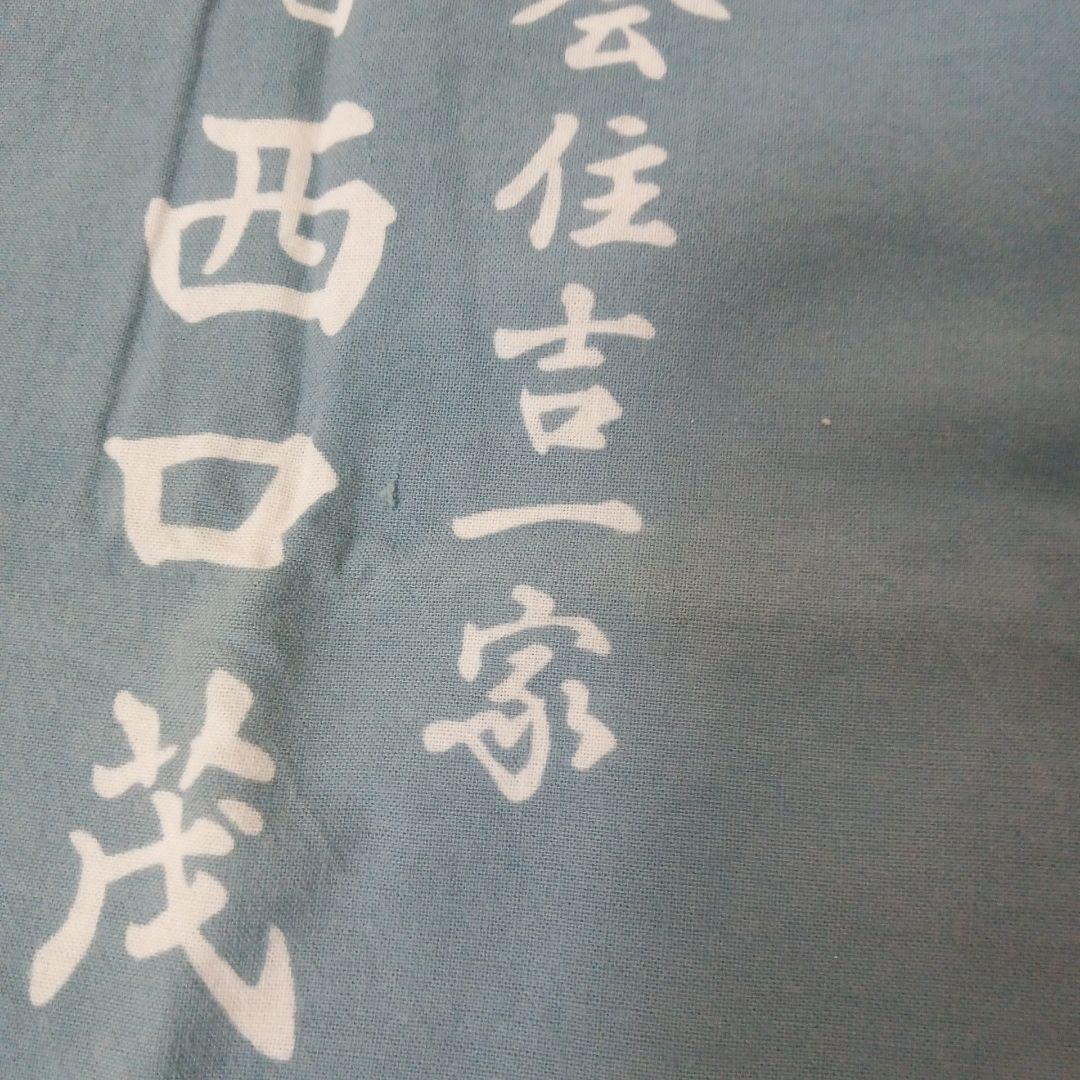 会住吉一家
西口茂